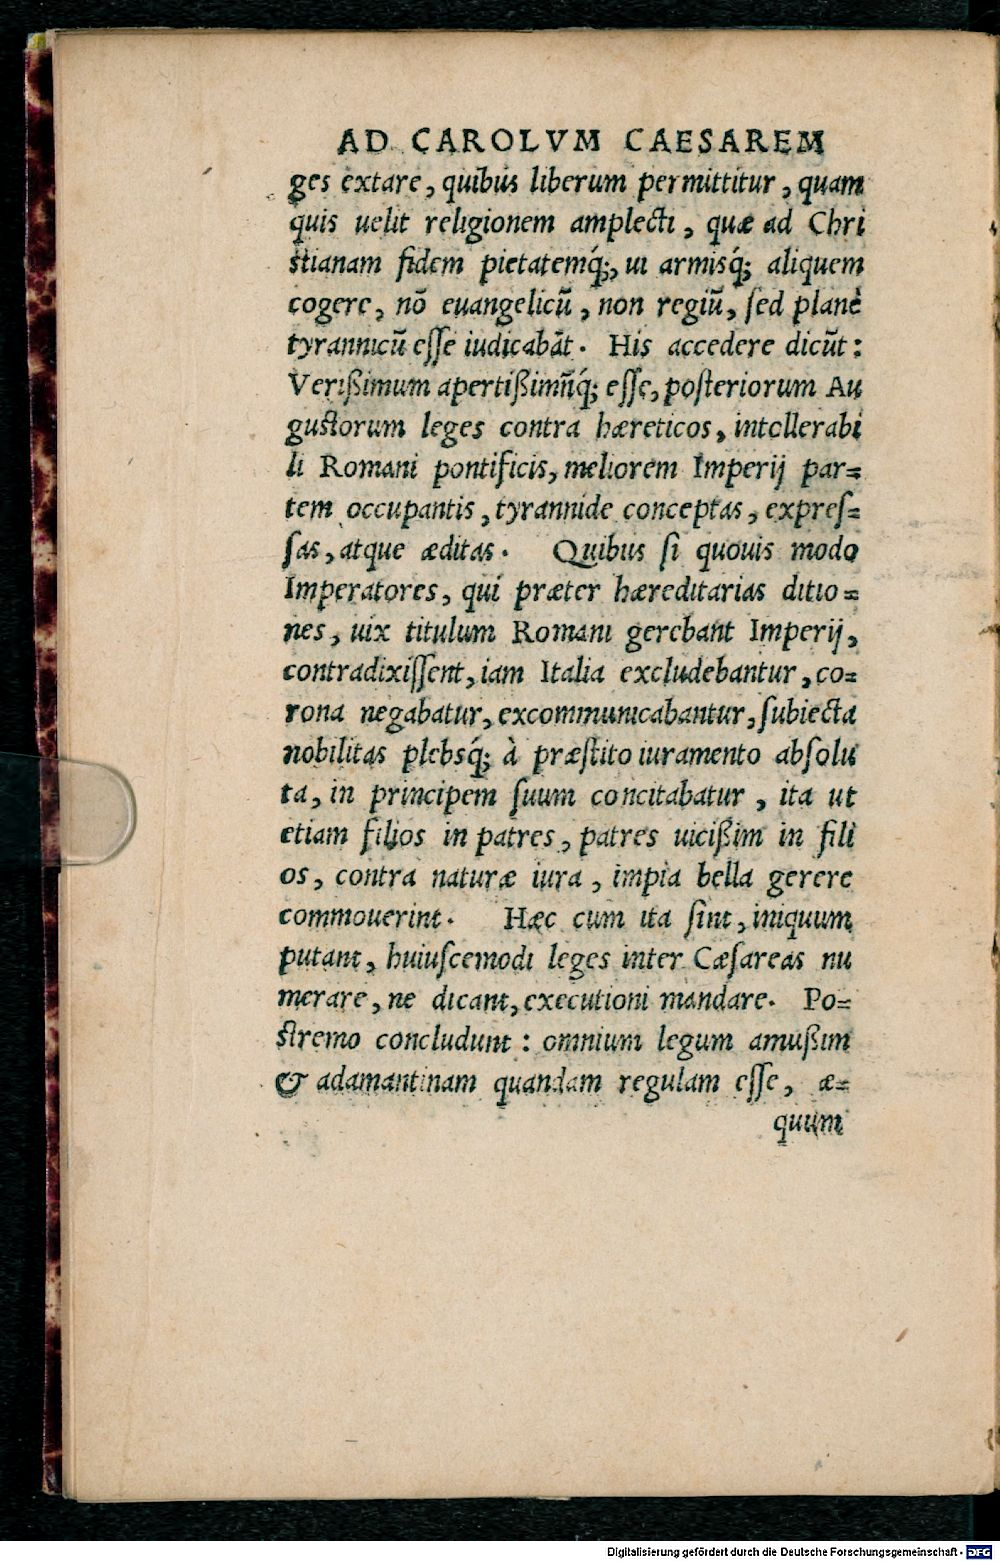 AD CAROLVM CAESAREM
ges extare, quibus liberum permittitur, quam
quis uelit religionem amplecti, quæ ad Chri
stianam fidem pietatemq́;, ui armisq́; aliquem
cogere, nō euangelicū, non regiū, sed planè
tyrannicū esse iudicabāt. His accedere dicūt:
Verißimum apertißimūq́; esse, posteriorum Au
gustorum leges contra hæreticos, intollerabi
li Romani pontificis, meliorem Imperij par-
tem occupantis, tyrannide conceptas, expres-
sas, atque æditas. Quibus si quouis modo
Imperatores, qui præter hæreditarias ditio-
nes, uix titulum Romani gerebant Imperij,
contradixissent, iam Italia excludebantur, co-
rona negabatur, excommunicabantur, subiecta
nobilitas plebsq́; à præstito iuramento absolu
ta, in principem suum concitabatur, ita ut
etiam filios in patres, patres uicißim in fili
os, contra naturæ iura, impia bella gerere
commouerint. Hæc cum ita sint, iniquum
putant, huiuscemodi leges inter Cæsareas nu
merare, ne dicant, executioni mandare. Po-
stremo concludunt: omnium legum amußim
& adamantinam quandam regulam esse, æ-
quum
Digitalisierung gefördert durch die Deutsche Forschungsgemeinschaft - DFG